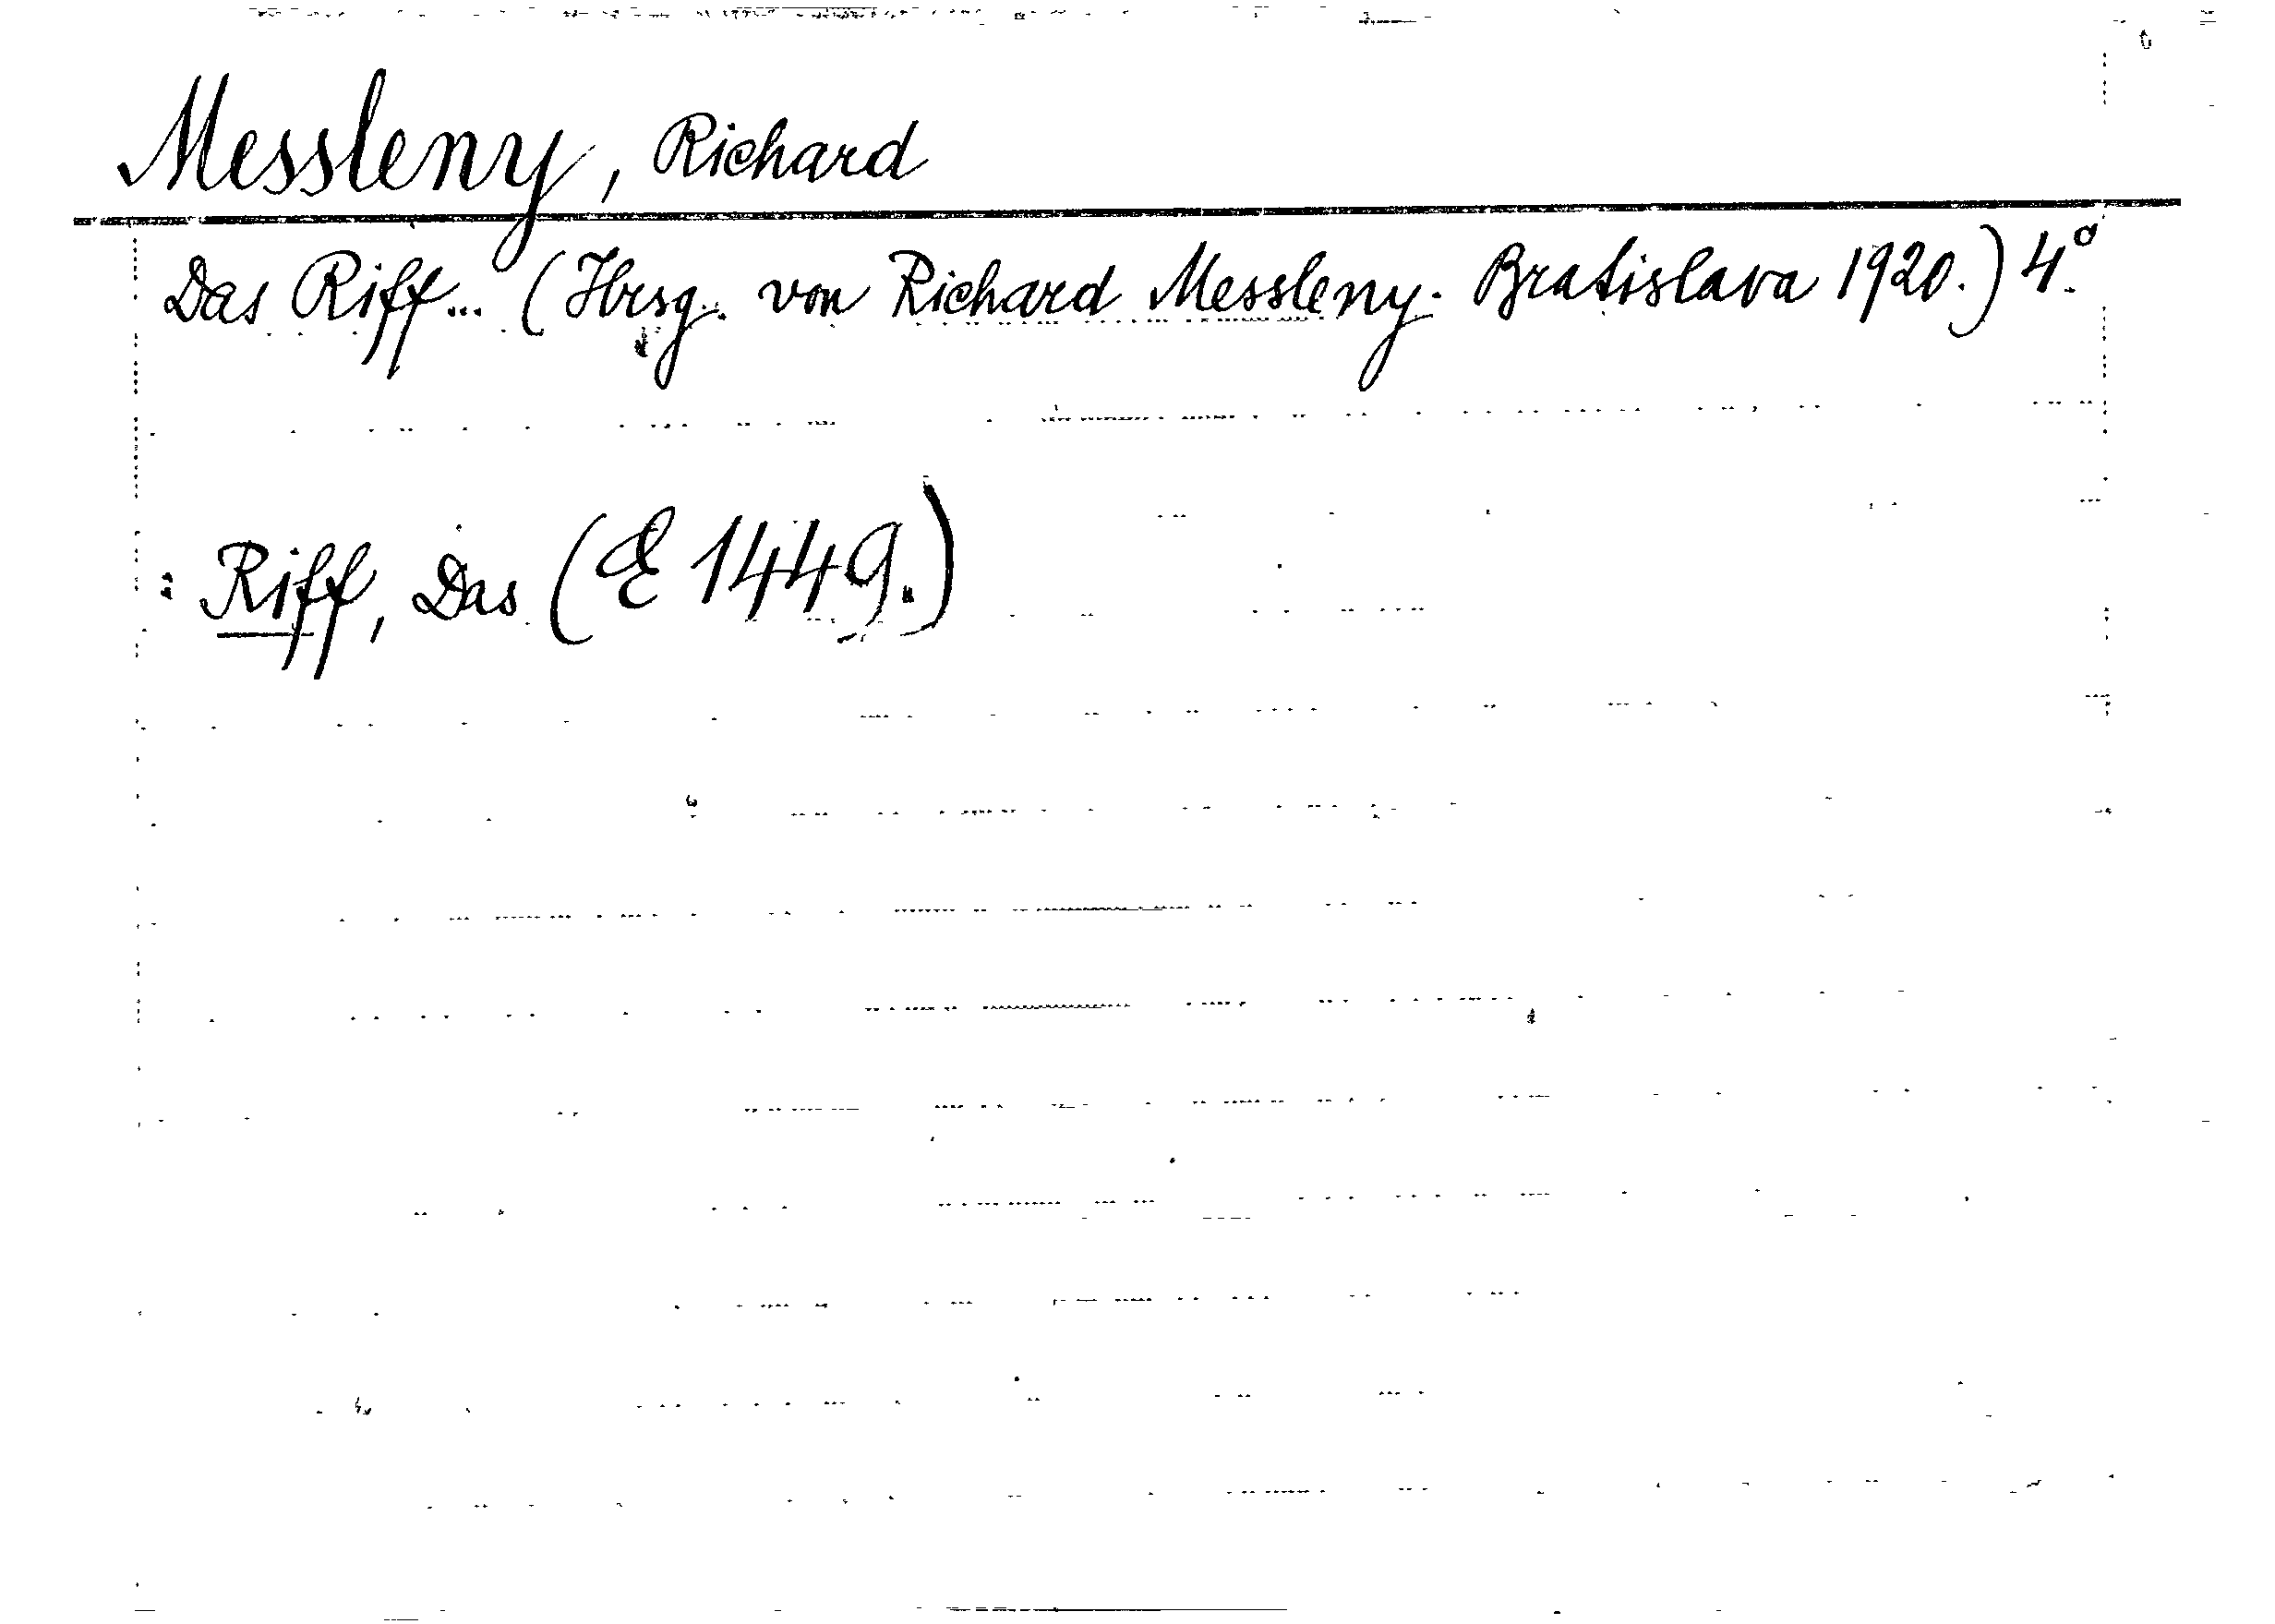 Messleny, Richard
Das Riff... (Hrsg. von Richard Messleny. Bratislava 1920.) 4°.
: Riff, Das (E 1449.)